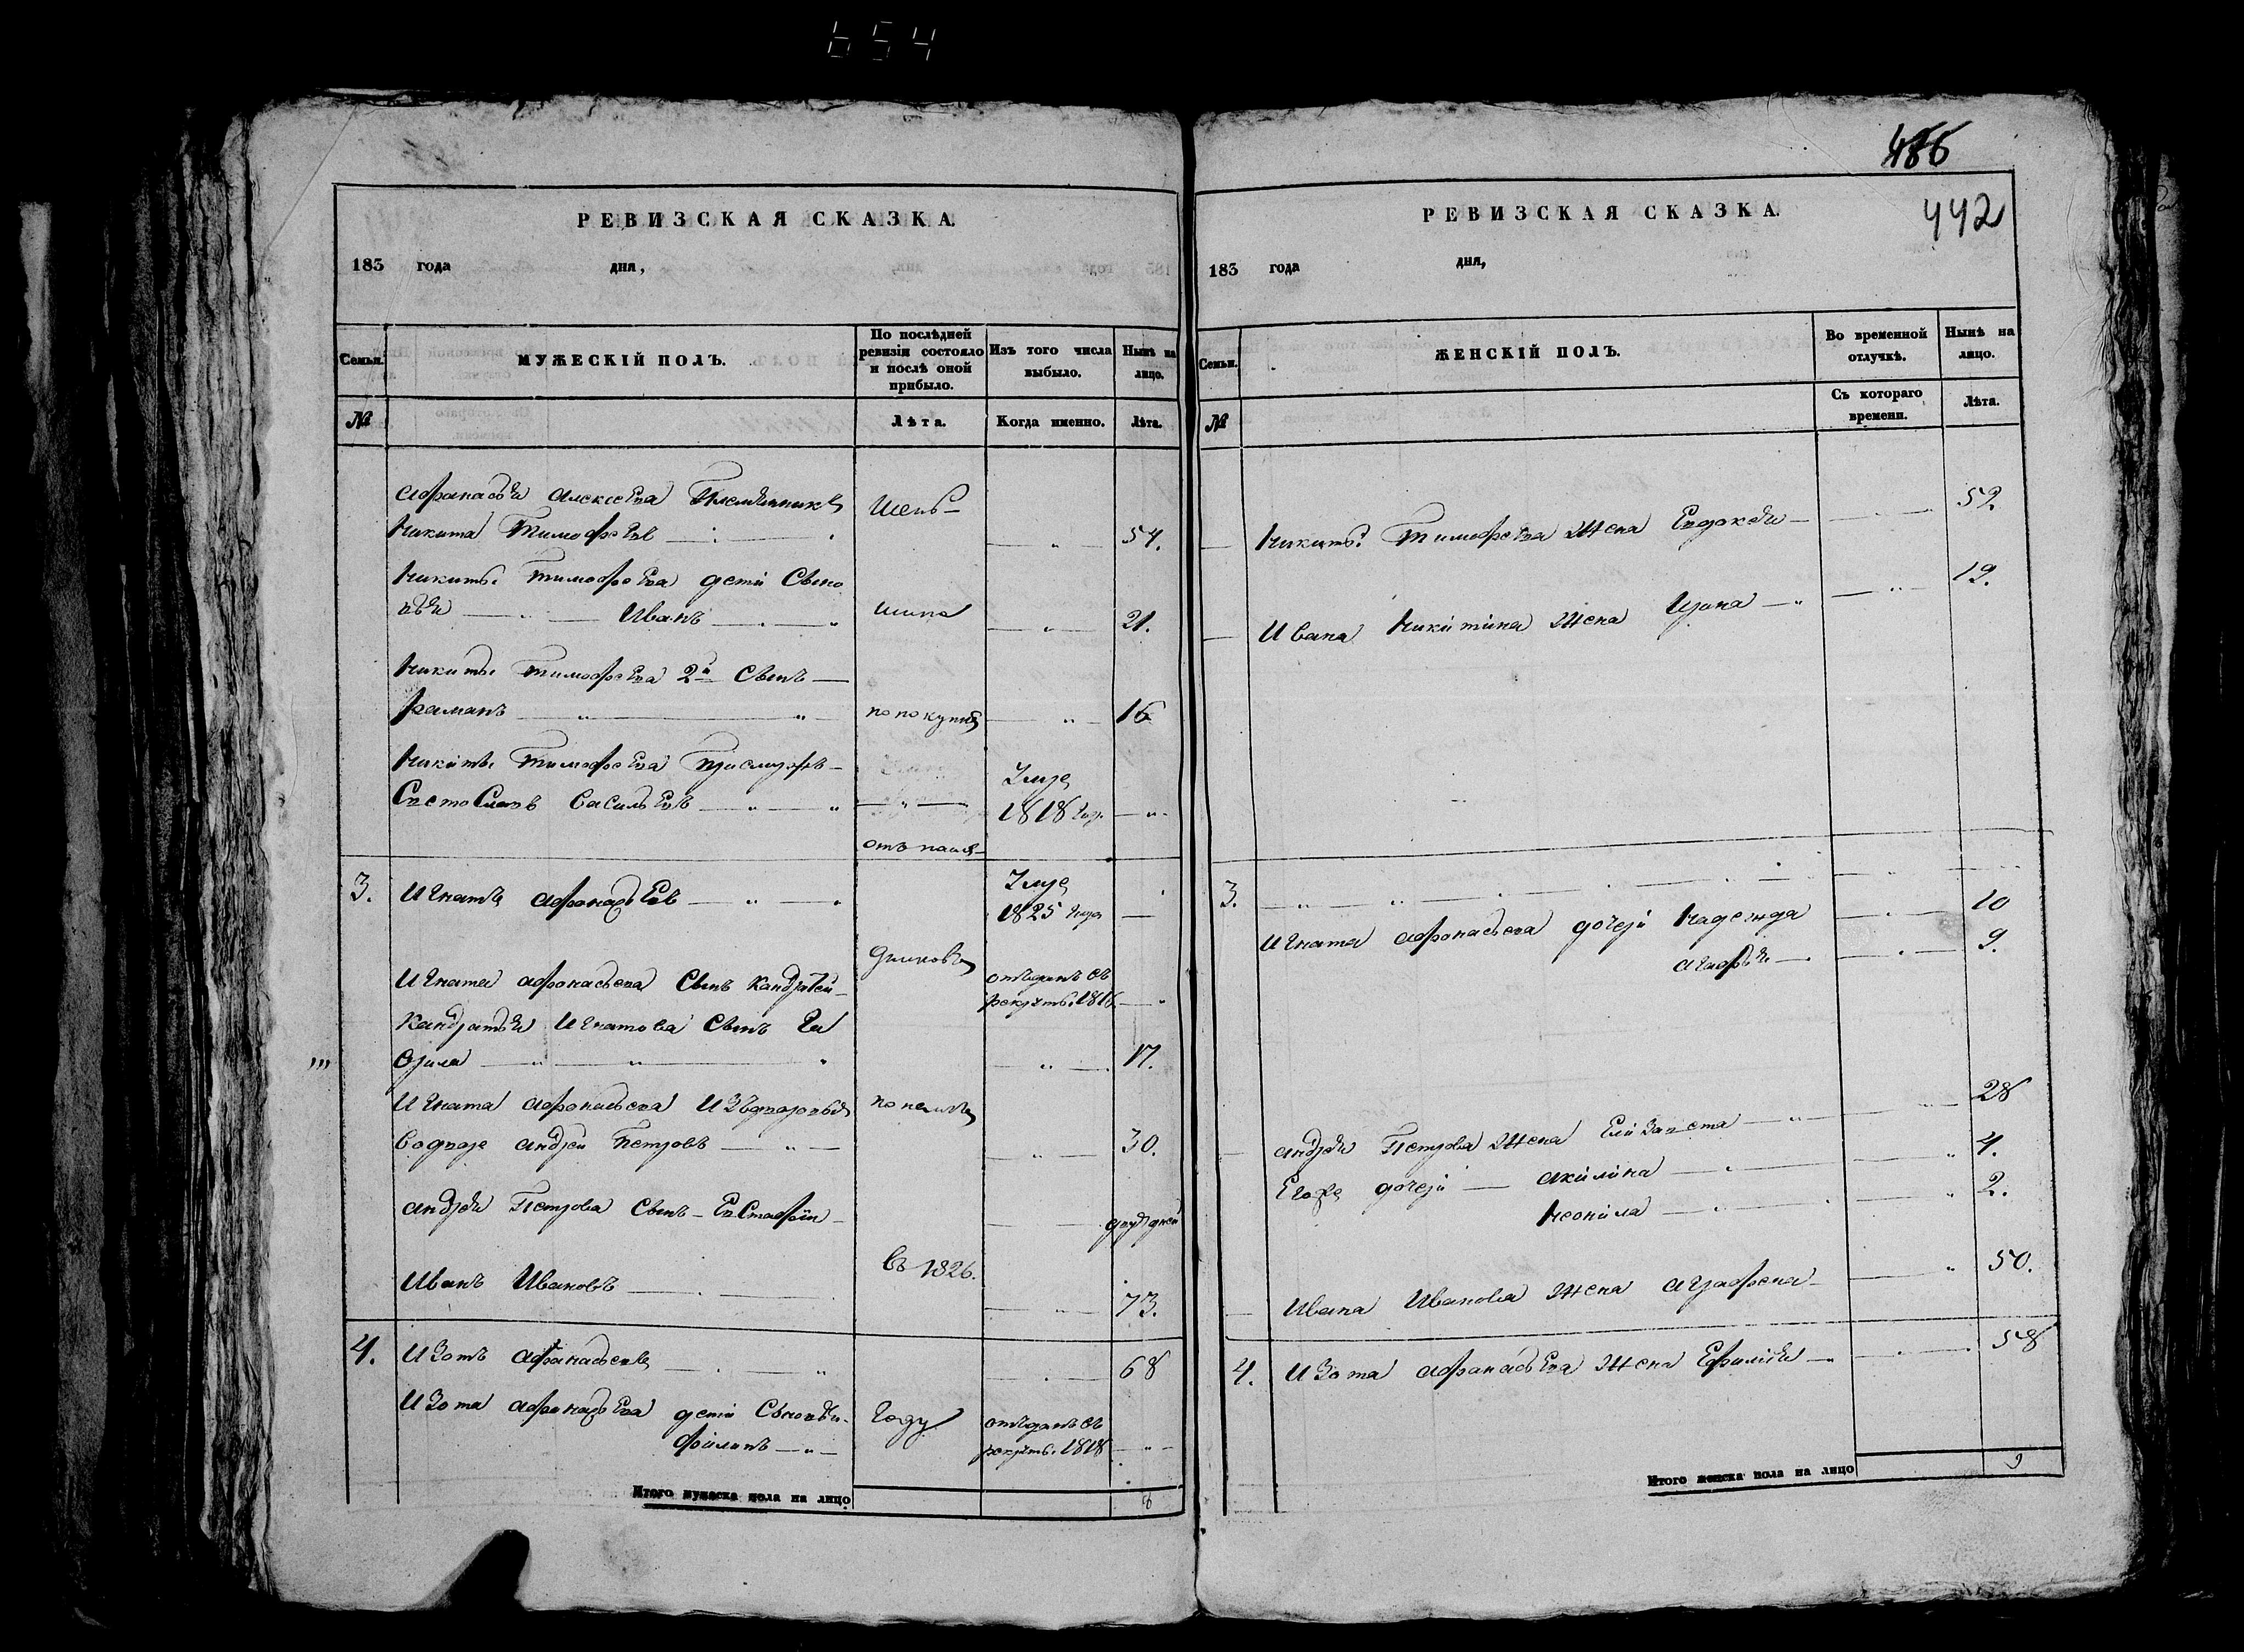 654
486
442
РЕВИЗСКАЯ СКАЗКА.
183 года дня,
Семьи.
МУЖЕСКІЙ ПОЛЪ.
По послѣдней
ревизіи состояло
и послѣ оной
прибыло.
Изъ того числа
выбыло.
Нынѣ на
лицо.
№
Лѣта.
Когда именно.
Лѣта.
Афанасья Алексѣева Племянникъ
Никита Тимофѣевъ 54.
Никиты Тимофеева дети Сыно
вья Иванъ 21.
Никиты Тимофеева 2й Сынъ
Раманъ по покупкѣ 16
Никиты Тимофеева
Васильевъ 1818
3. Игнатъ Афонасьевъ 1825 года
Игната Афонасьева Сынъ Кандратей
отъданъ въ
рекруты 1816
Кандратья Игнатова Сынъ Га
врила 17.
Игната Афонасьева
Андрей Петровъ 30.
Андрея Петрова Сынъ Евстафей
Иванъ Ивановъ въ 1826. 73.
4. Изотъ Афанасьевъ 68
Изота Афонасьева дети Сыновья
Филипъ году отъданъ въ
рекруты 1818
Итого мужеска пола на лицо 8
РЕВИЗСКАЯ СКАЗКА.
183 года дня,
Семьи.
ЖЕНСКІЙ ПОЛЪ.
Во временной
отлучкѣ.
Нынѣ на
лицо.
№
Съ котораго
времени.
Лѣта.
Никиты Тимофеева Жена Евдокея 52.
Ивана Никитина Жена 19.
3.
Игната Афонасьева дочери Надежда 10
Агафья 9.
Андрея Петрова Жена Елизавета 28
Егоже дочери Акилина 4.
Неонила 2.
Ивана Иванова Жена Аграфена 50.
4. Изота Афанасьева Жена Ефимия 58
Итого женска пола на лицо 9